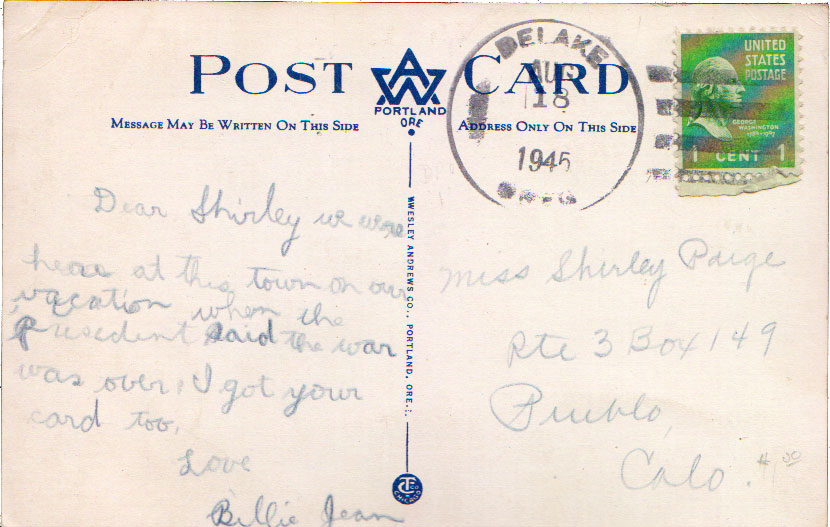 POST CARD
AW
PORTLAND
ORE
MESSAGE MAY BE WRITTEN ON THIS SIDE
ADDRESS ONLY ON THIS SIDE
DELAKE
AUG
18
1945
OREG
UNITED
STATES
POSTAGE
GEORGE
WASHINGTON
1789-1797
1 CENT 1
Dear Shirley we were
heare at this town on our
vacation when the
Presedent said the war
was over, I got your
card too,
Love
Billie Jean
WESLEY ANDREWS CO., PORTLAND, ORE.
Miss Shirley Paige
Rte 3 Box 149
Pueblo,
Colo.
CHICAGO